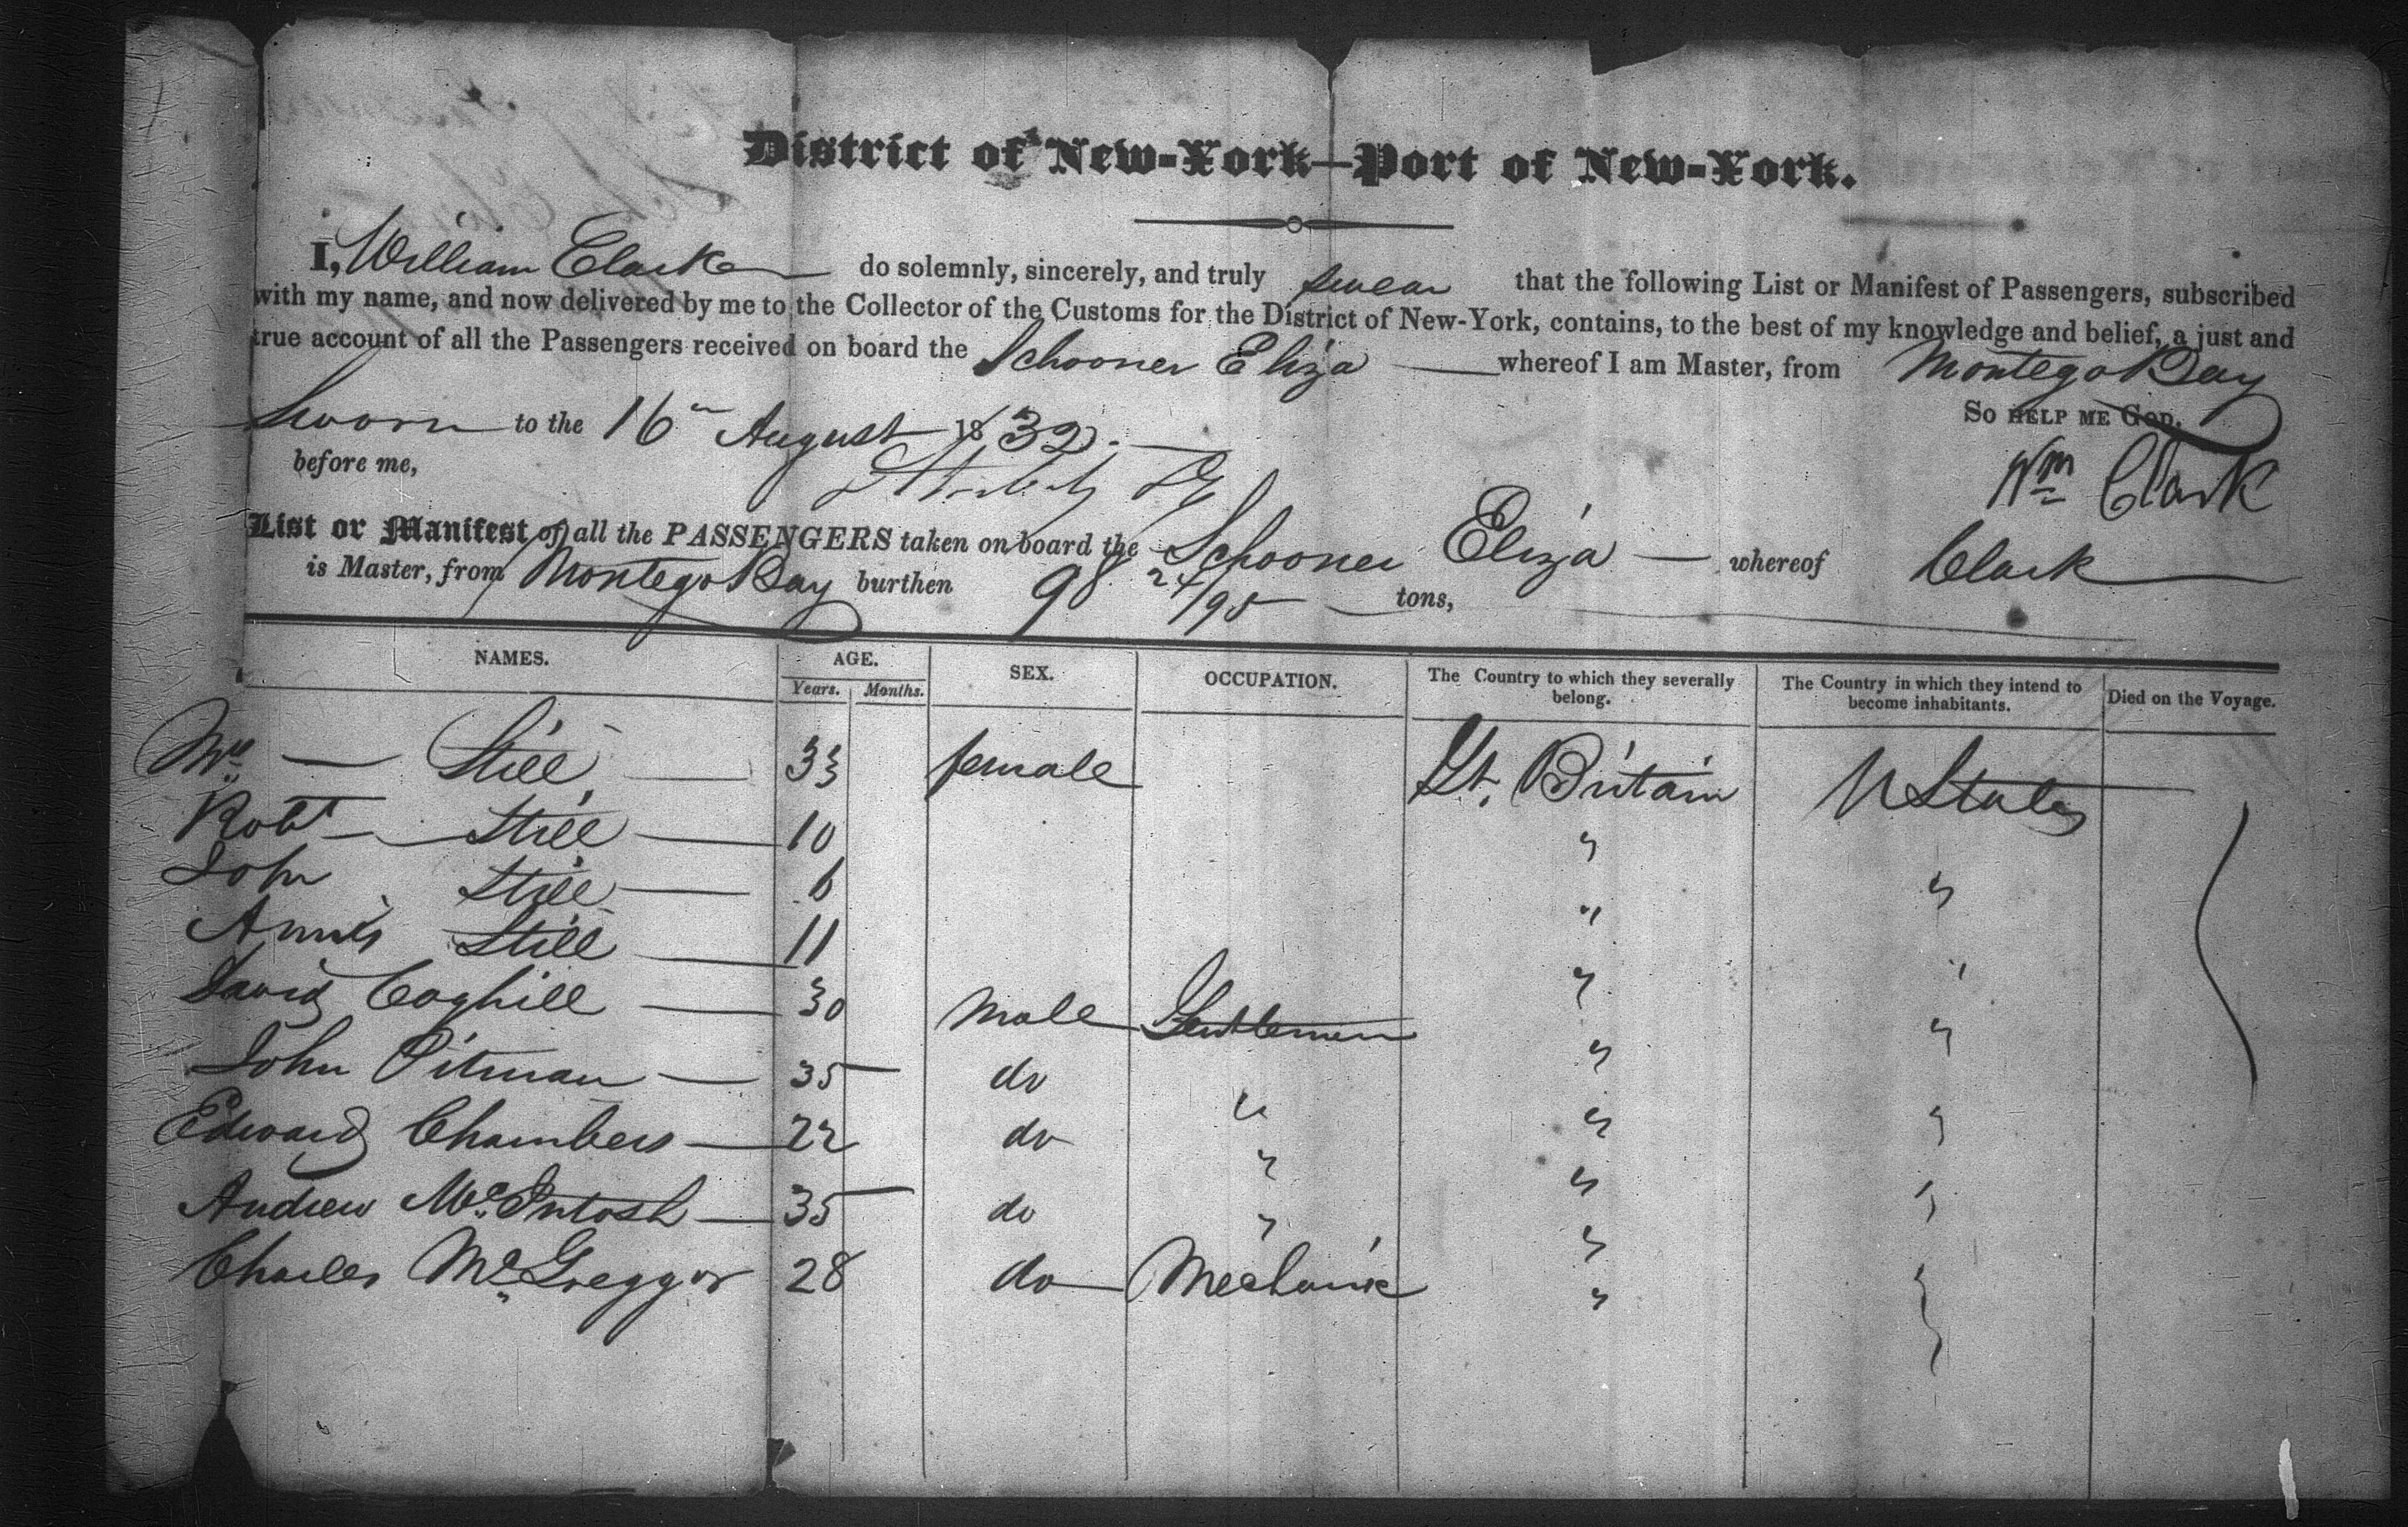 District of New-York—Port of New-York.
I, William Clark do solemnly, sincerely, and truly swear that the following List or Manifest of Passengers, subscribed
with my name, and now delivered by me to the Collector of the Customs for the District of New-York, contains, to the best of my knowledge and belief, a just and
true account of all the Passengers received on board the Schooner Eliza whereof I am Master, from Montego Bay
So HELP ME GOD.
Sworn to the 16 August 1832.
before me,
Wm Clark
List or Manifest of all the PASSENGERS taken on board the Schooner Eliza whereof Clark
is Master, from Montego Bay burthen 98 24/95 tons,
NAMES. AGE. SEX. OCCUPATION. The Country to which they severally belong. The Country in which they intend to become inhabitants. Died on the Voyage.
Years. Months.
Mrs Still 33 female Gt. Britain U States
Robt Still 10 " "
John Still 6 " "
Still 11 " "
David Coghill 30 male Gentlemen " "
John Pitman 35 do " " "
Edward Chambers 22 do " " "
Andrew McIntosh 35 do " " "
Charles McGreggor 28 do Mechanic "